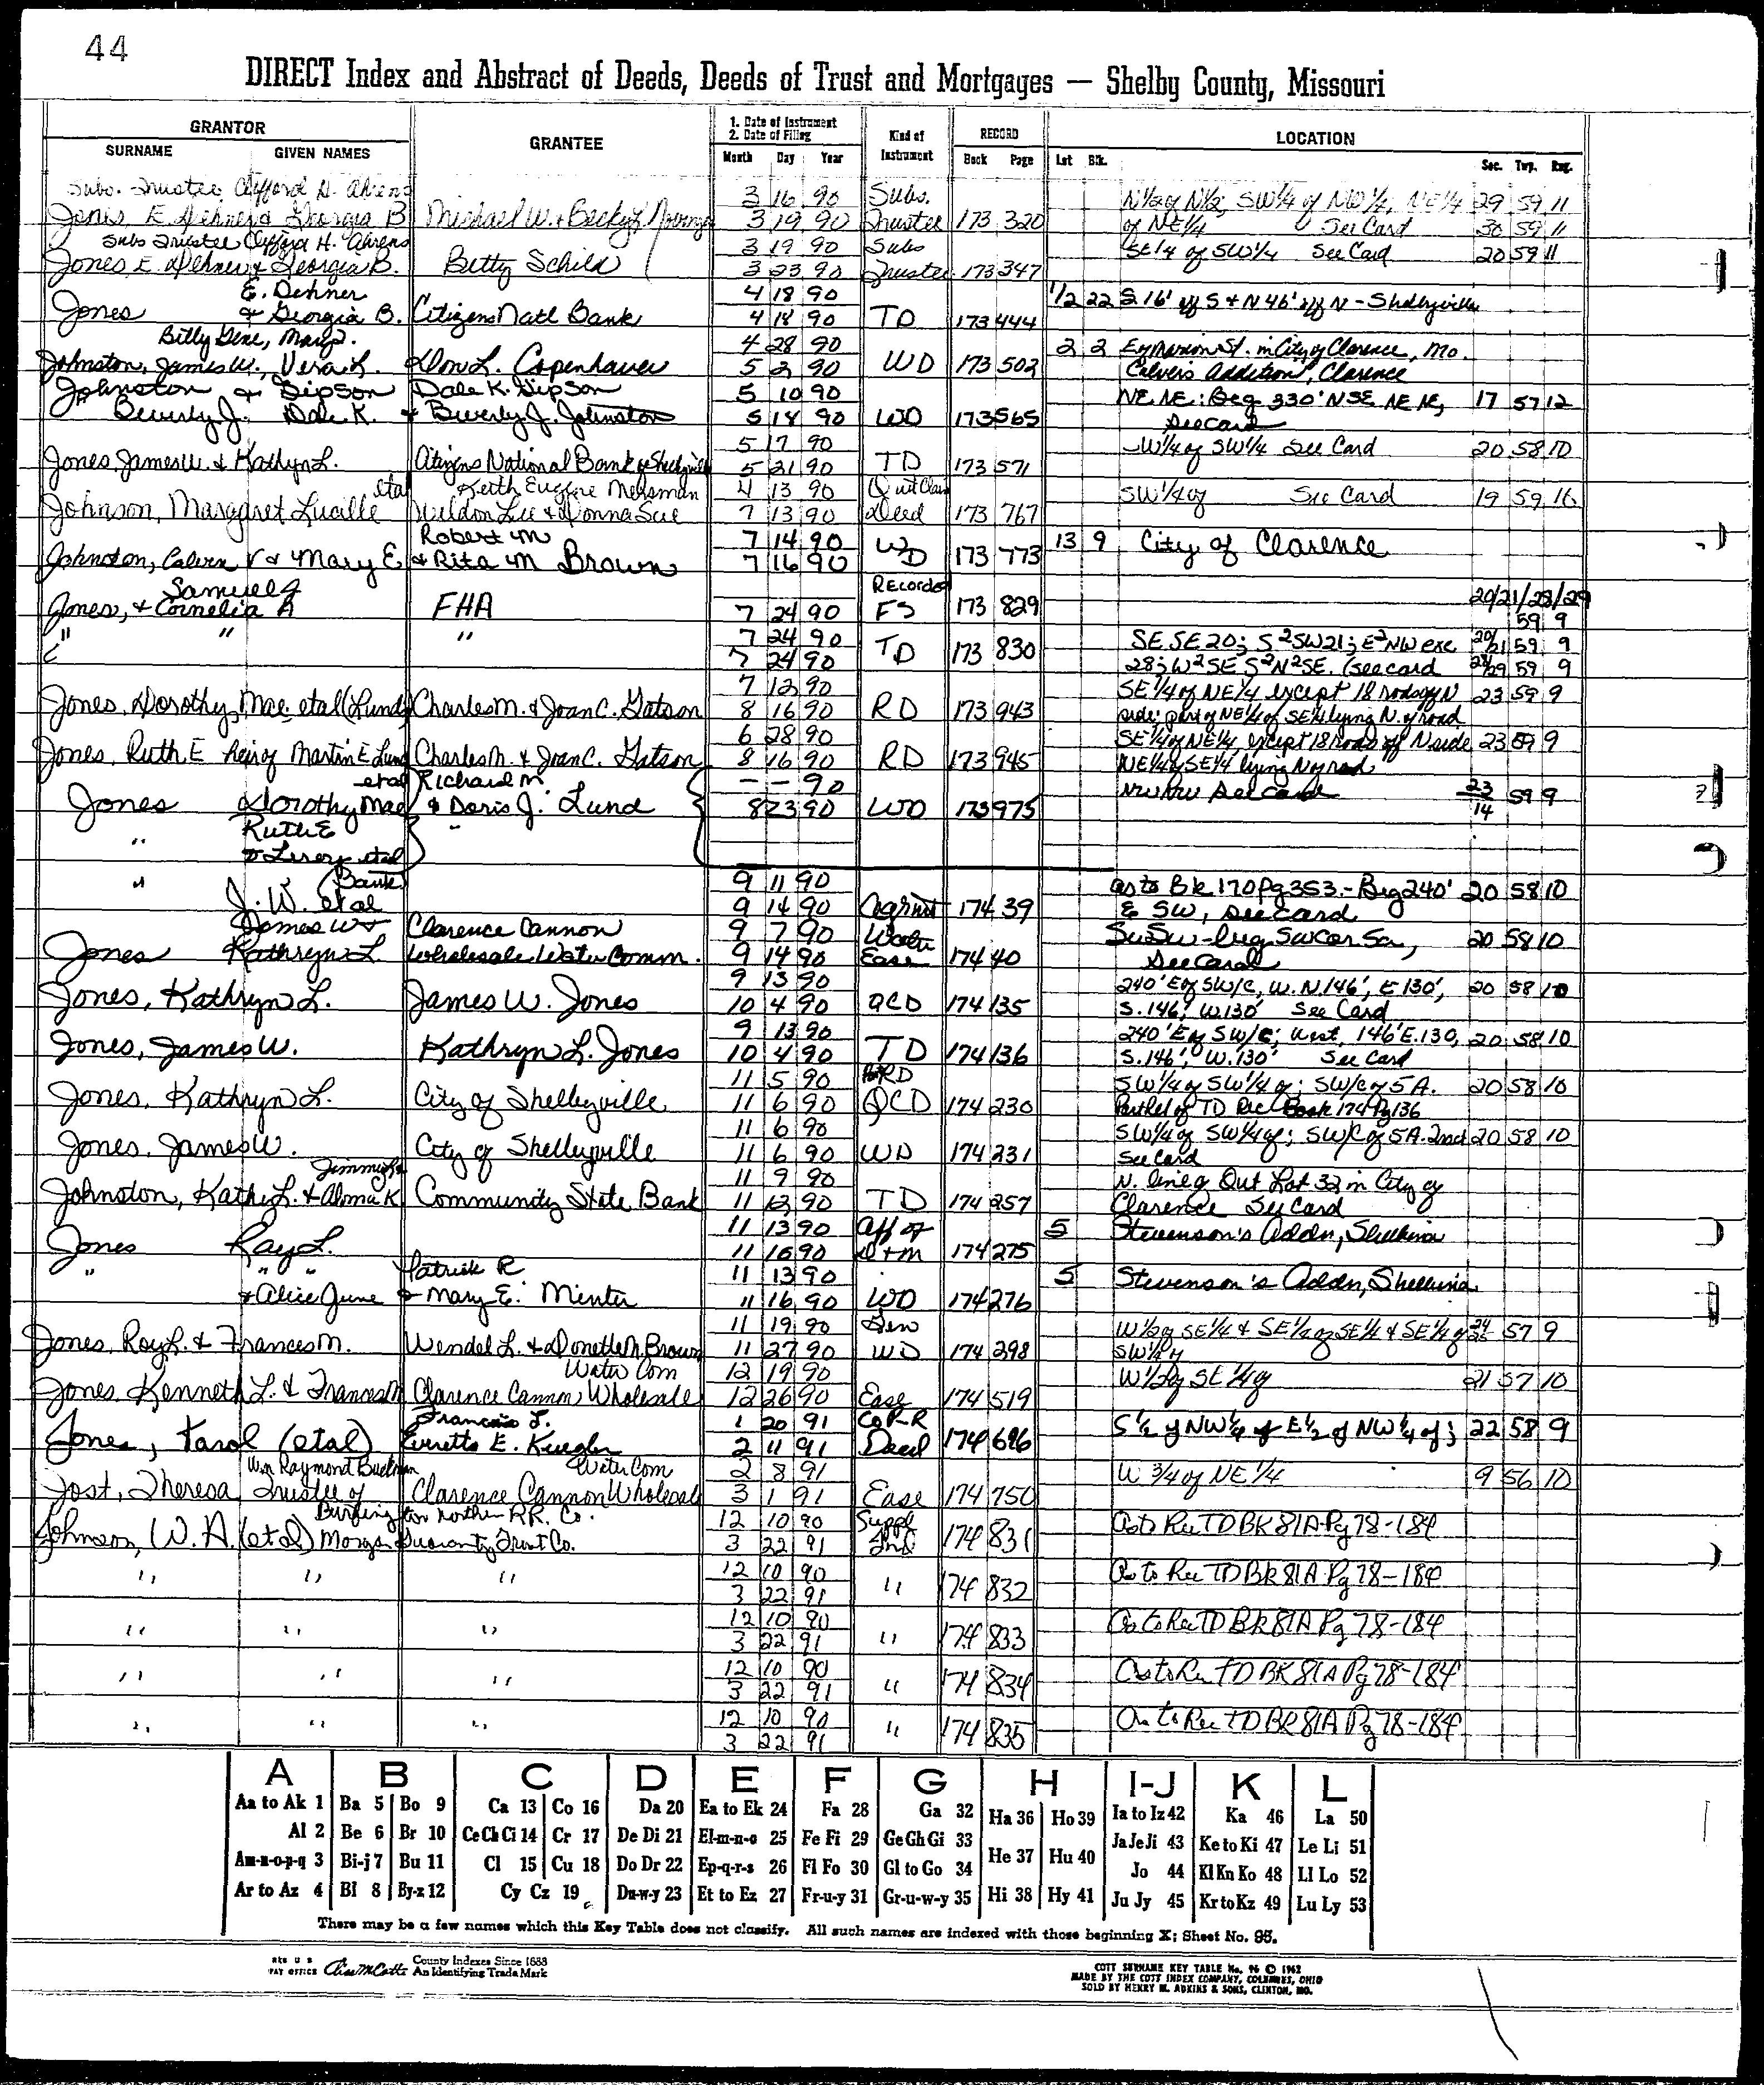 44
DIRECT Index and Abstract of Deeds, Deeds of Trust and Mortgages — Shelby County, Missouri
GRANTOR
SURNAME GIVEN NAMES
GRANTEE
1. Date of Instrument
2. Date of Filing
Month Day Year
Kind of Instrument
RECORD
Book Page
LOCATION
Lot Blk. Sec. Twp. Rng.
Subs. Trustee Clifford H. Ahrens 3 16 90 Subs. N1/2 of N1/2; SW1/4 of NW1/4, NE1/4 29 59 11
Jones E. Dehner & Georgia B Michael W. & Becky L 3 19 90 Trustee 173 320 of NE1/4 See Card 30 59 11
Subs Trustee Clifford H. Ahrens 3 19 90 Subs SE1/4 of SW1/4 See Card 20 59 11
Jones E. Dehner & Georgia B. Betty Schild 3 23 90 Trustee 173 347
E. Dehner 4 18 90 1/2 22 S 16' off S & N 46' off N - Shelbyville
Jones & Georgia B. Citizens Natl Bank 4 18 90 TD 173 444
Billy Gene, Mary 4 28 90 2 2 Marion St. in City of Clarence, Mo.
Johnston, James W., Vera L. Don L. Copenhaver 5 2 90 WD 173 502 Calvers Addition, Clarence
Johnston & Gipson Dale K. Gipson 5 10 90 NE NE: Beg 330' N SE NE NE, 17 57 12
Beverly J. Dale K. & Beverly J. Johnston 5 18 90 WD 173 565 See card
5 17 90 W1/4 of SW1/4 See Card 20 58 10
Jones James W. & Kathyn L. Citizens National Bank of Shelbyville 5 21 90 TD 173 571
etal Keith Eugene Mersman 4 13 90 Quit Claim SW1/4 of See Card 19 59 16
Johnson, Margaret Lucille Weldon Lee & Donna Sue 7 13 90 Deed 173 767
Robert M 7 14 90 WD 13 9 City of Clarence
Johnston, Calvin V & Mary E & Rita M Brown 7 16 90 173 773
Samuel J Recorded 20/21/28/29
Jones, & Cornelia A FHA 7 24 90 FS 173 829 59 9
" " " 7 24 90 TD 173 830 SE SE 20; S2SW21; E2NW exc 20/21 59 9
7 24 90 28; W2SE S2N2SE. (see card 28/29 59 9
7 12 90 SE 1/4 of NE 1/4 except 18 rods off N 23 59 9
Jones, Dorothy Mae, etal (Lund) Charles M. & Joan C. Gatson 8 16 90 RD 173 943 side; part of NE1/4 of SE1/4 lying N. of road
6 28 90 SE 1/4 of NE 1/4, except 18 rods off N side 23 59 9
Jones, Ruth E heir of Martin E Lund Charles M. & Joan C. Gatson 8 16 90 RD 173 945 NE1/4 of SE1/4 lying N of road
etal Richard M. — — 90 NW NW See card 23/14 59 9
Jones Dorothy Mae & Doris J. Lund 8 23 90 WD 173 975
Ruth E "
"
& Leroy etal
" (Bank) 9 11 90 as to Bk 170 Pg 353.- Beg 240' 20 58 10
J. W. etal 9 14 90 Agrmt 174 39 E SW, see card
James W & Clarence Cannon 9 7 90 Water SW SW - beg SW Cor 20 58 10
Jones Kathryn L. Wholesale Water Comm. 9 14 90 Ease 174 40 See Card
9 13 90 240' E of SW/C, W. N. 146', E 130', 20 58 10
Jones, Kathryn L. James W. Jones 10 4 90 QCD 174 135 S. 146', W. 130' See Card
9 13 90 240' E of SW/C; west, 146' E. 130, 20 58 10
Jones, James W. Kathryn L. Jones 10 4 90 TD 174 136 S. 146', W. 130' See Card
11 5 90 SW1/4 of SW1/4 of; SW/C of 5 A. 20 58 10
Jones, Kathryn L. City of Shelbyville 11 6 90 QCD 174 230 Part Rel of TD Rec Book 174 Pg 136
11 6 90 SW1/4 of SW1/4 of; SW/C of 5 A. Tract 20 58 10
Jones, James W. City of Shelbyville 11 6 90 WD 174 231 See Card
11 9 90 N. line of Out Lot 32 in City of
Johnston, Kathi L. & Aloma K Community State Bank 11 13 90 TD 174 257 Clarence See Card
11 13 90 Aff of 5 Stevenson's Addn, Shelbina
Jones Ray L. 11 16 90 D + M 174 275
" " " Patrick R 11 13 90 5 Stevenson's Addn, Shelbina
& Alice June & Mary E. Minter 11 16 90 WD 174 276
11 19 90 Gen W 1/2 of SE 1/4 & SE 1/4 of SE 1/4 & SE 1/4 of 57 9
Jones, Roy L. & Frances M. Wendel L. & Donette M. Brown 11 27 90 WD 174 298 SW 1/4 of
Water Com 12 19 90 W 1/2 of SE 1/4 of 21 57 10
Jones, Kenneth L. & Frances M Clarence Cannon Wholesale 12 26 90 Ease 174 519
Francis J. 1 20 91 CoR-R S 1/2 of NW 1/4 of E 1/2 of NW 1/4 of; 22 58 9
Jones, Karol (etal) Everette E. Kuegler 2 11 91 Deed 174 696
Wm Raymond Buckman Water Com 2 8 91 W 3/4 of NE 1/4 9 56 10
Jost, Theresa Trustee of Clarence Cannon Wholesale 3 1 91 Ease 174 750
Burlington Northern RR. Co. 12 10 90 Suppl As to Rec TD BK 81A Pg 78-184
Johnson, W. A. (etal) Morgan Guaranty Trust Co. 3 22 91 Ind 174 831
" " " 12 10 90 " 174 832 As to Rec TD BK 81A Pg 78-184
3 22 91
" " " 12 10 90 As to Rec TD BK 81A Pg 78-184
3 22 91 " 174 833
" " " 12 10 90 As to Rec TD BK 81A Pg 78-184
3 22 91 " 174 834
" " " 12 10 90 As to Rec TD BK 81A Pg 78-184
3 22 91 " 174 835
A B C D E F G H I-J K L
Aa to Ak 1 Ba 5 Bo 9 Ca 13 Co 16 Da 20 Ea to Ek 24 Fa 28 Ga 32 Ha 36 Ho 39 Ia to Iz 42 Ka 46 La 50
Al 2 Be 6 Br 10 Ce Ch Ci 14 Cr 17 De Di 21 El-m-n-o 25 Fe Fi 29 Ge Gh Gi 33 He 37 Hu 40 Ja Je Ji 43 Ke to Ki 47 Le Li 51
Am-n-o-p-q 3 Bi-j 7 Bu 11 Cl 15 Cu 18 Do Dr 22 Ep-q-r-s 26 Fl Fo 30 Gl to Go 34 Jo 44 Kl Kn Ko 48 Ll Lo 52
Ar to Az 4 Bl 8 By-z 12 Cy Cz 19 Du-w-y 23 Et to Ez 27 Fr-u-y 31 Gr-u-w-y 35 Hi 38 Hy 41 Ju Jy 45 Kr to Kz 49 Lu Ly 53
There may be a few names which this Key Table does not classify. All such names are indexed with those beginning X; Sheet No. 95.
REG U S PAT OFFICE County Indexes Since 1888 An Identifying Trade Mark
COTT SURNAME KEY TABLE No. 96 © 1962
MADE BY THE COTT INDEX COMPANY, COLUMBUS, OHIO
SOLD BY HENRY M. ADKINS & SONS, CLINTON, MO.